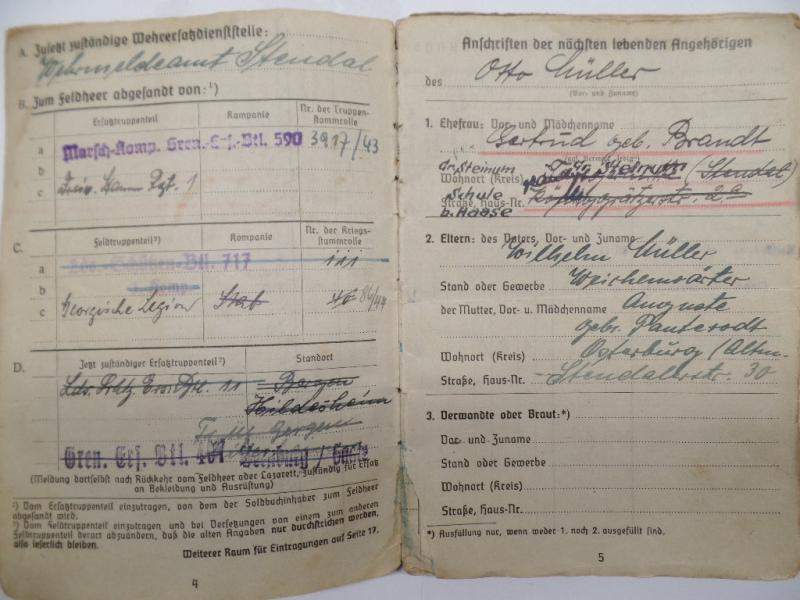 A. Zuletzt zuständige Wehrersatzdienststelle:
Wehrmeldeamt Stendal
B. Zum Feldheer abgesandt von:¹)
Ersatztruppenteil Kompanie Nr. der Truppenstammrolle
a Marsch-Komp. Gren.-Ers.-Btl. 590 3917/43
b
c
C. Feldtruppenteil²) Kompanie Nr. der Kriegsstammrolle
a Lds.-Schützen-Btl. 717 iii
b Komp.
c Georgische Legion Stab 86/44
D. Jetzt zuständiger Ersatztruppenteil²) Standort
Lds. Schtz. Ers. Btl. 11 Bergen
Hildesheim
Gren. Ers. Btl. 461
(Meldung dortselbst nach Rückkehr vom Feldheer oder Lazarett, zuständig für Ersatz
an Bekleidung und Ausrüstung)
¹) Vom Ersatztruppenteil einzutragen, von dem der Soldbuchinhaber zum Feldheer
abgesandt wird.
²) Vom Feldtruppenteil einzutragen und bei Versetzungen von einem zum anderen
Feldtruppenteil derart abzuändern, daß die alten Angaben nur durchstrichen werden,
also leserlich bleiben.
Weiterer Raum für Eintragungen auf Seite 17.
4
Anschriften der nächsten lebenden Angehörigen
des Otto Müller
(Vor- und Zuname)
1. Ehefrau: Vor- und Mädchenname
Gertrud geb. Brandt
Gr. Steinum
Wohnort (Kreis) (Stendal)
Schule
Straße, Haus-Nr. 2a
b. Haase
2. Eltern: des Vaters, Vor- und Zuname
Wilhelm Müller
Stand oder Gewerbe Weichenwärter
der Mutter, Vor- u. Mädchenname Auguste
gebr. Panterodt
Wohnort (Kreis) Osterburg (Altm.
Straße, Haus-Nr. Stendalerstr. 30
3. Verwandte oder Braut:*)
Vor- und Zuname
Stand oder Gewerbe
Wohnort (Kreis)
Straße, Haus-Nr.
*) Ausfüllung nur, wenn weder 1. noch 2. ausgefüllt sind.
5